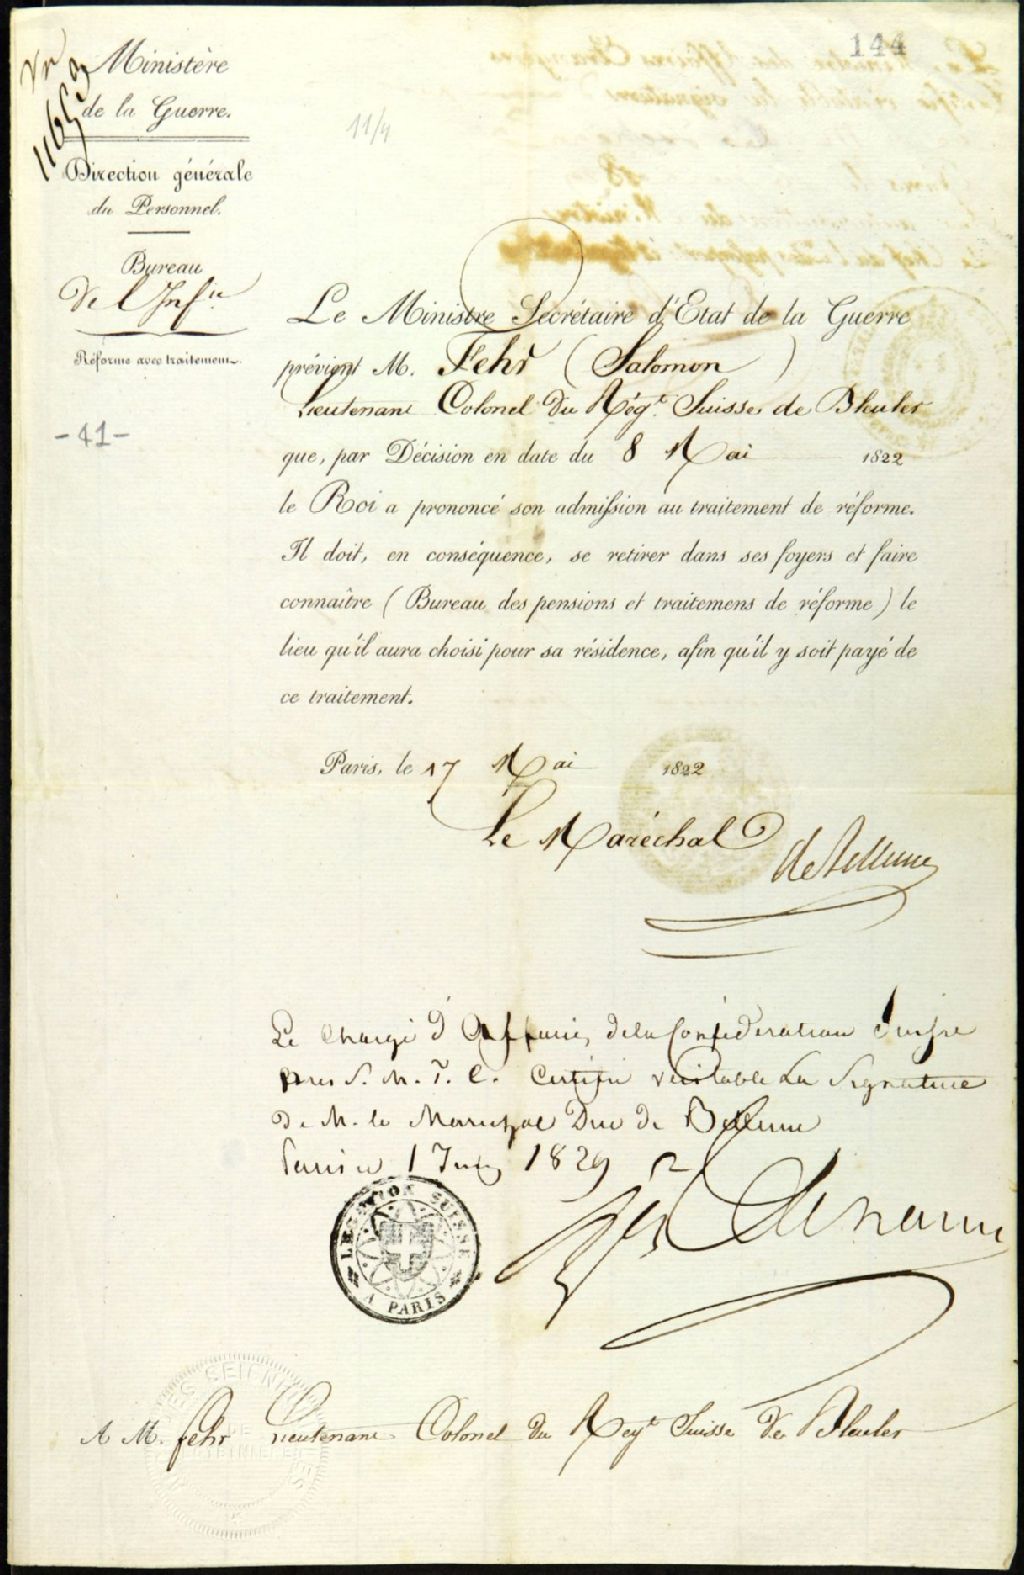 144
Vr
11659
Ministère
de la Guerre.
11/4
Direction générale
du Personnel.
Bureau
de l'Inf.ie
Réforme avec traitement.
-41-
Le Ministre Secrétaire d'Etat de la Guerre
prévient M. Fehr (Salomon)
Lieutenant Colonel du Rég.t Suisse de Bleuler
que, par Décision en date du 8 Mai 1822
le Roi a prononcé son admission au traitement de réforme.
Il doit, en conséquence, se retirer dans ses foyers et faire
connaître (Bureau des pensions et traitemens de réforme) le
lieu qu'il aura choisi pour sa résidence, afin qu'il y soit payé de
ce traitement.
Paris, le 17 Mai 1822
Le Maréchal
de Bellune
Le Chargé d'Affaires de la Confédération Suisse
près S. M. T. C. Certifie veritable La Signature
De M. le Marechal Duc de Bellune
Paris ce 1 Juin 1829
LEGATION SUISSE
A PARIS
A M. Fehr Lieutenant Colonel du Reg.t Suisse de Bleuler